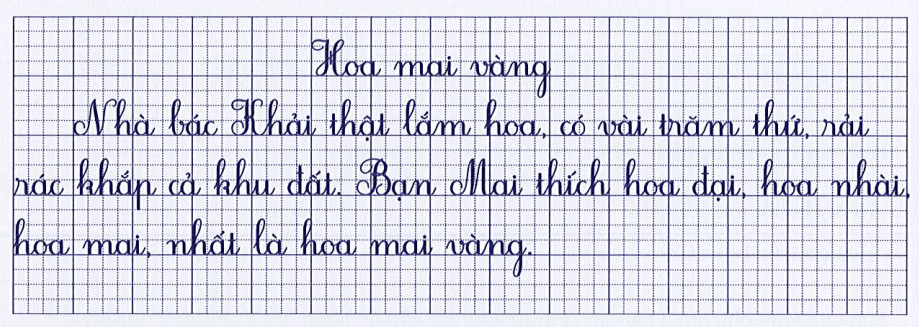 Hoa mai vàng
Nhà bác Khải thật lắm hoa, có vài trăm thứ, rải
rác khắp cả khu đất. Bạn Mai thích hoa đại, hoa nhài,
hoa mai, nhất là hoa mai vàng.